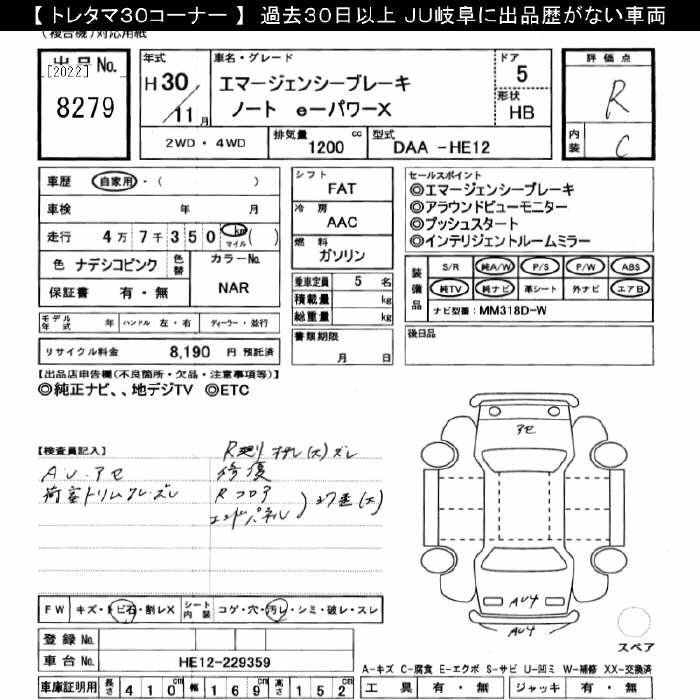 【トレタマ30コーナー】 過去30日以上 JU岐阜に出品歴がない車両
(複合機)対応用紙
出品No.
[2022]
8279
年式
H30
11月
車名・グレード
エマージェンシーブレーキ
ノート e-パワーX
ドア
5
形状
HB
評価点
R
内装
C
2WD・4WD
排気量
1200 cc
型式
DAA -HE12
車歴 自家用・( )
車検 年 月
走行 4万7千350 km マイル ( )
色 ナデシコピンク 色替
カラーNo.
NAR
保証書 有・無
シフト
FAT
冷房
AAC
燃料
ガソリン
乗車定員 5 名
積載量 kg
総重量 kg
書類期限
月 日
セールスポイント
◎エマージェンシーブレーキ
◎アラウンドビューモニター
◎プッシュスタート
◎インテリジェントルームミラー
装備品
S/R 純A/W P/S P/W ABS
純TV 純ナビ 革シート 外ナビ エアB
ナビ型番: MM318D-W
後日品
モデル年式 年 ハンドル 左・右 ディーラー・並行
リサイクル料金 8,190 円 預託済
【出品店申告欄(不良箇所・欠品・注意事項等)】
◎純正ナビ、、地デジTV ◎ETC
【検査員記入】
AU.アセ
荷室トリムワレ.ズレ
修復
Rコーア
エンドパネル
アセ
AU4
AU4
スペア
FW キズ・トビ石・割レX
シート内装 コゲ・穴・汚レ・シミ・破レ・スレ
登録No.
車台No. HE12-229359
車庫証明用 長さ 410cm 幅 169cm 高さ 152cm
A-キズ C-腐食 E-エクボ S-サビ U-凹ミ W-補修 XX-交換済
工具 有・無 ジャッキ 有・無